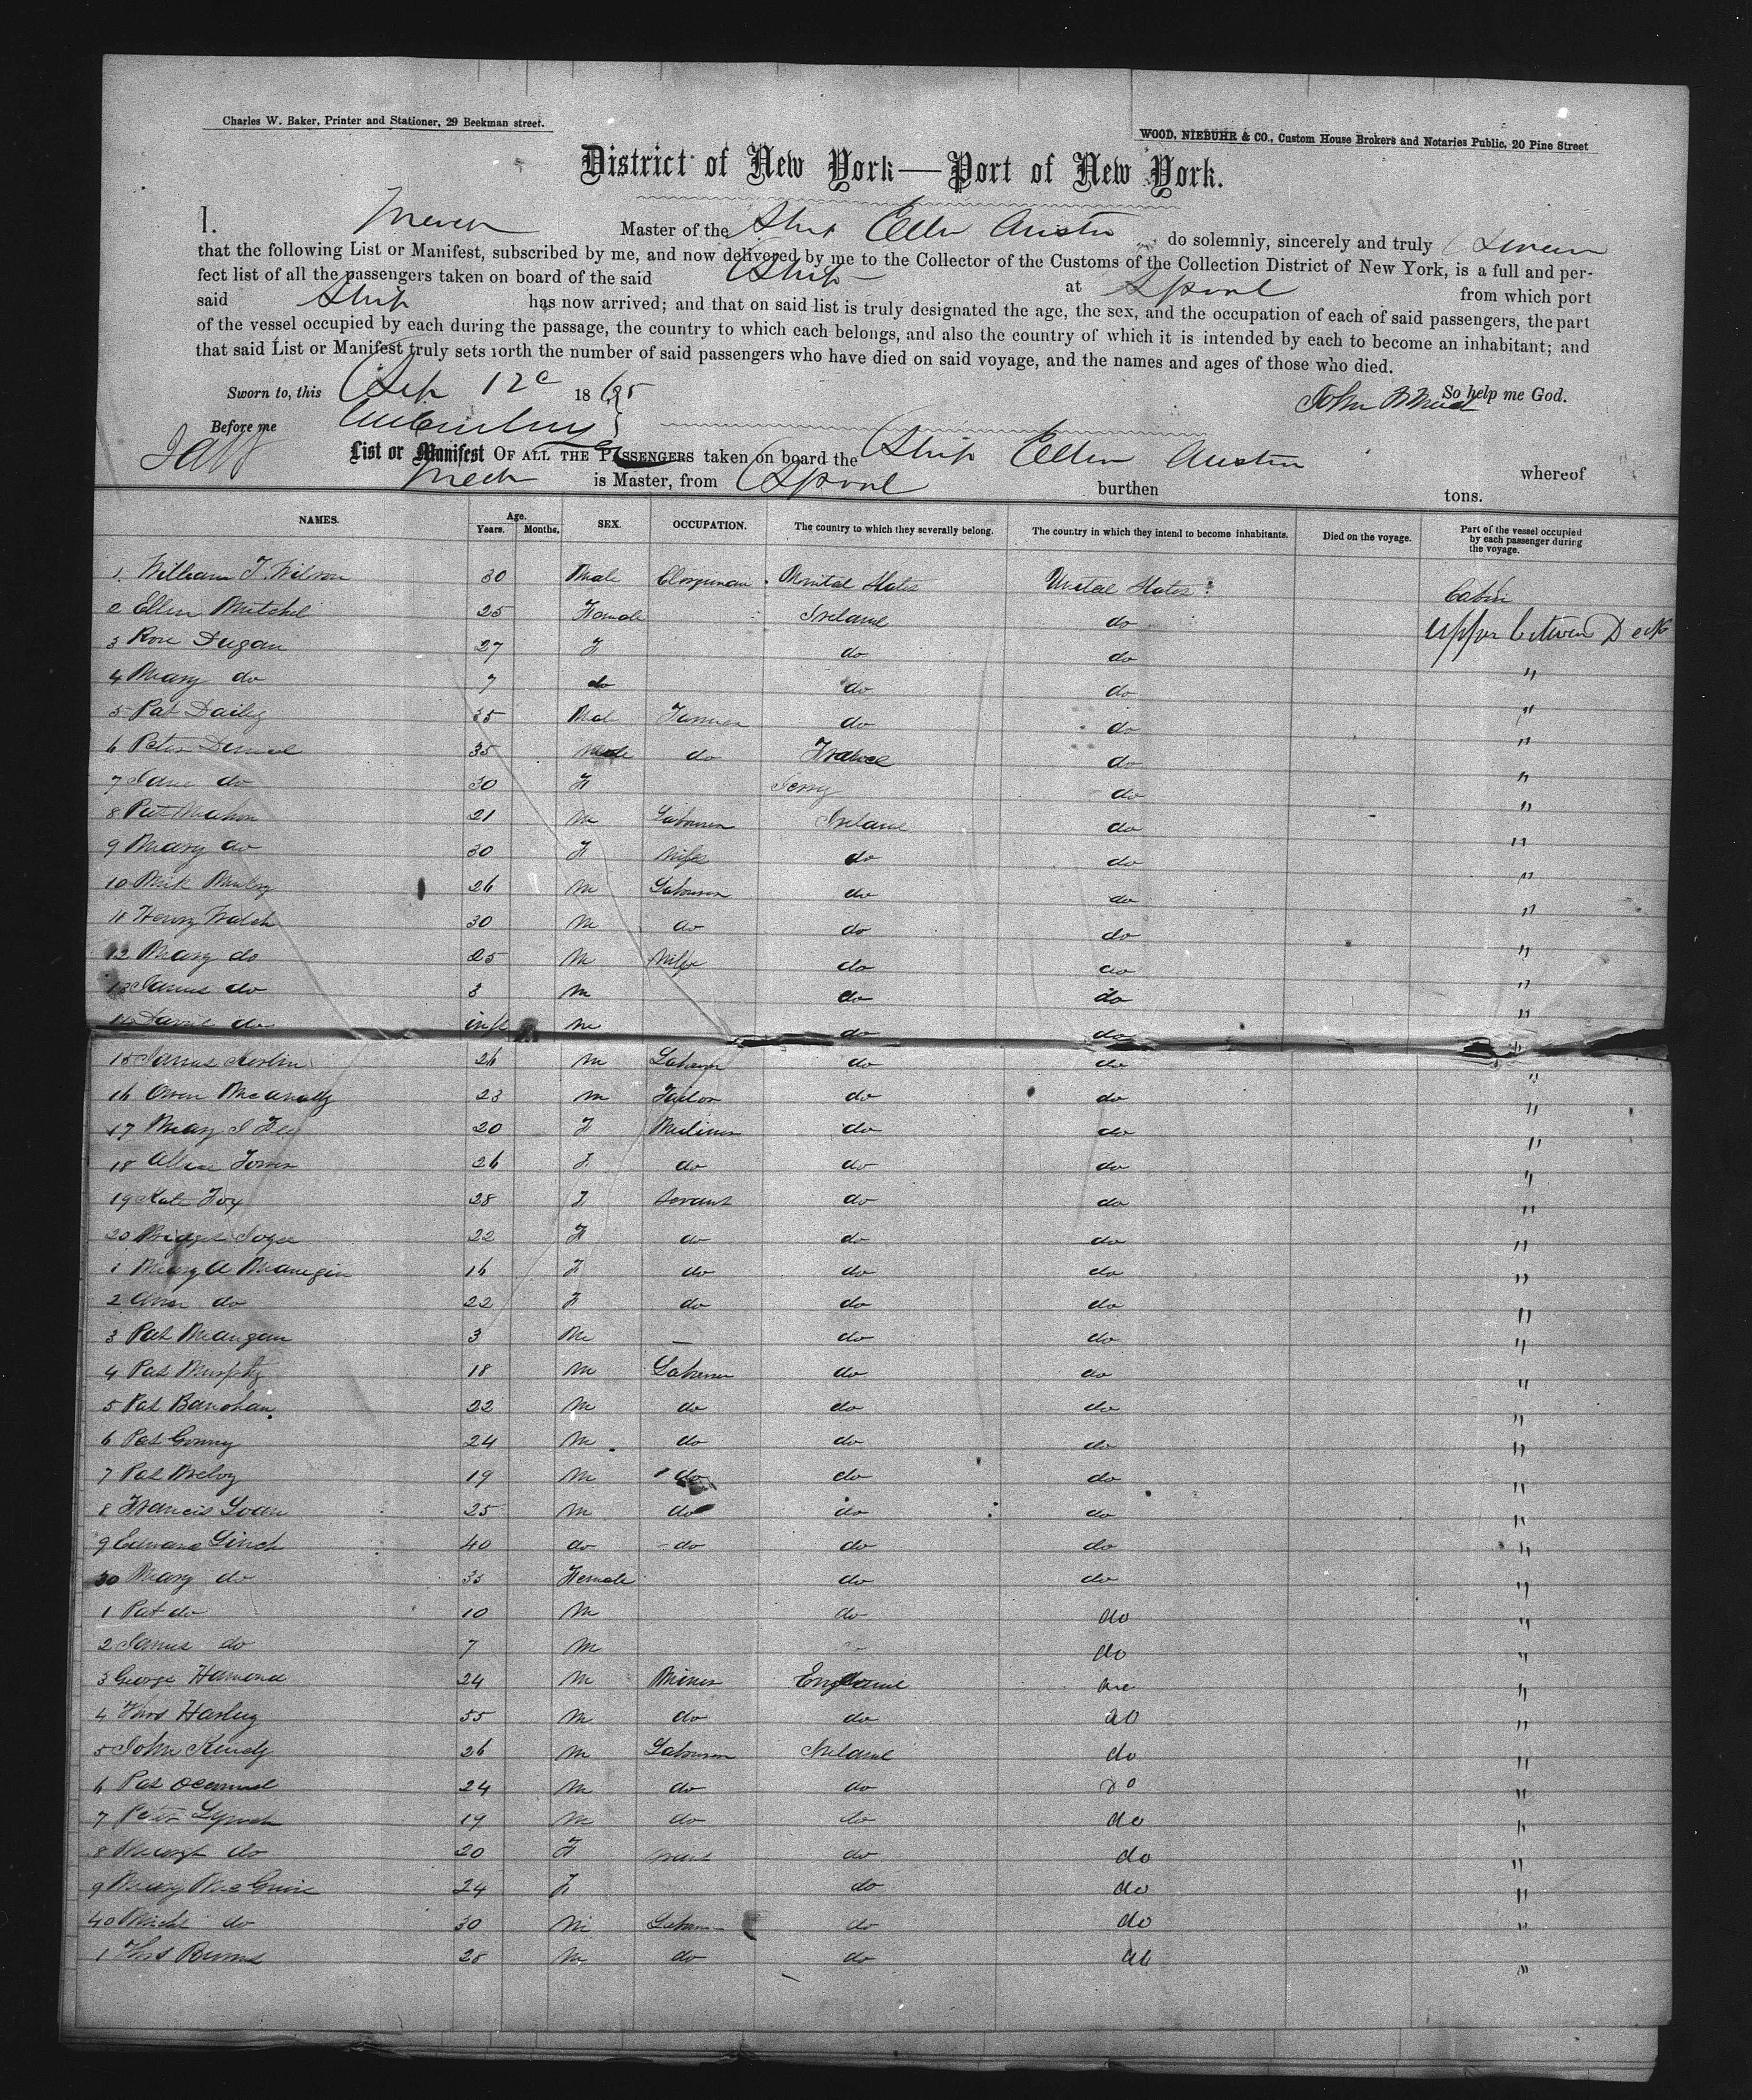 Charles W. Baker, Printer and Stationer, 29 Beekman street.
WOOD, NIEBUHR & CO., Custom House Brokers and Notaries Public, 20 Pine Street
District of New York—Port of New York.
I. Master of the Ship Ellen Austin do solemnly, sincerely and truly Swear
that the following List or Manifest, subscribed by me, and now delivered by me to the Collector of the Customs of the Collection District of New York, is a full and per-
fect list of all the passengers taken on board of the said Ship at Lpool from which port
said Ship has now arrived; and that on said list is truly designated the age, the sex, and the occupation of each of said passengers, the part
of the vessel occupied by each during the passage, the country to which each belongs, and also the country of which it is intended by each to become an inhabitant; and
that said List or Manifest truly sets forth the number of said passengers who have died on said voyage, and the names and ages of those who died.
Sworn to, this Sep 12 1865 So help me God.
Before me John
List or Manifest OF ALL THE PASSENGERS taken on board the Ship Ellen Austin whereof
is Master, from Lpool burthen tons.
NAMES. Age. Years. Months. SEX. OCCUPATION. The country to which they severally belong. The country in which they intend to become inhabitants. Died on the voyage. Part of the vessel occupied by each passenger during the voyage.
1. William T. Wilson 30 Male Clergiman United States United States Cabin
2 Ellen Mitchel 25 Female Ireland do Upper between Deck
3 Rose Dugan 27 F do do "
4 Mary do 7 do do do "
5 Pat Daily 35 Male Farmer do do "
6 Peter 35 male do France do "
7 Jane do 30 F Jersy do "
8 Pat Mahon 21 M Labourer Ireland do "
9 Mary do 30 F Wife do do "
10 Mik 26 M Labourer do do "
11 Henry Walch 30 M do do do "
12 Mary do 25 M Wife do do "
13 James do 3 M do do "
14 do inft M do do "
15 James 26 M Labourer do do "
16 Owen McAnally 23 M Tailor do do "
17 Mary J 20 F do do "
18 26 F do do do "
19 Kate Foy 28 F Servant do do "
20 Bridget Joyce 22 F do do do "
1 Mary A 16 F do do do "
2 Ann do 22 F do do do "
3 Pat Mangan 3 M — do do "
4 Pat Murphy 18 M Labourer do do "
5 Pat 22 M do do do "
6 Pat 24 M do do do "
7 Pat 19 M do do do "
8 Francis Loan 25 M do do do "
9 Edward Linch 40 do do do do "
30 Mary do 35 Female do do "
1 Pat do 10 M do do "
2 James do 7 M do "
3 George Hamond 24 M Miner England do "
4 Thos Harley 55 M do do do "
5 John 26 M Labourer Ireland do "
6 Pat 24 M do do do "
7 Peter Lynch 19 M do do do "
8 Margt do 20 F do do "
9 Mary McGuire 24 F do do "
40 Michl do 30 M Labourer do do "
1 Thos Burns 28 M do do do "